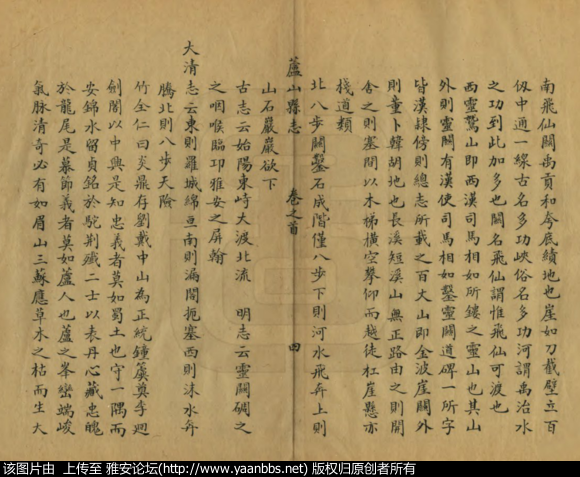 南飛仙關禹貢和夸底績地也崖如刀截壁立百
仭中通一線古名多功峽俗名多功河謂禹治水
之功到此加多也關名飛仙謂惟飛仙可渡也
西靈鷲山即西漢司馬相如所鏤之靈山也其山
外則靈關有漢使司馬相如鑿靈關道碑一所字
皆漢隸傍則總志所載之百大山即金波崖關外
則董卜韓胡地也長溪短溪山無正路由之則開
舍之則塞間以木梯橫空攀仰而越徒杠崖懸亦
棧道類
北八步關鑿石成階僅八步下則河水飛奔上則
蘆山縣志 卷之首 四
山石巖巖欲下
古志云始陽東峙大渡北流 明志云靈關碉之
之咽喉臨邛雅安之屏翰
大清志云東則羅城綿亘南則漏閣扼塞西則沫水奔
騰北則八步天險
竹全仁曰炎鼎存劉戴中山為正統鍾虡奠季廻
劍閣以中興是知忠義者莫如蜀土也守一隅而
安錦水留貞銘於駝荆殲二士以表丹心藏忠魄
於龍尾是慕節義者莫如蘆人也蘆之峯巒端峻
氣脉清奇必有如眉山三蘇應草木之枯而生大
该图片由 上传至 雅安论坛(http://www.yaanbbs.net) 版权归原创者所有